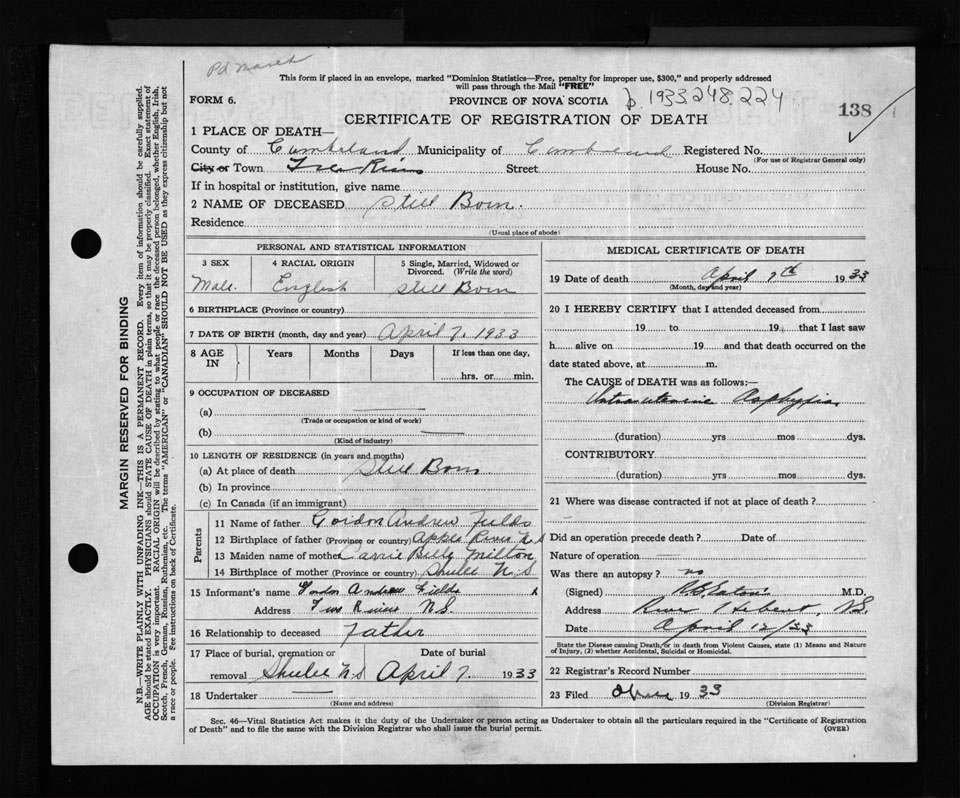 Pd March
This form if placed in an envelope, marked "Dominion Statistics—Free, penalty for improper use, $300," and properly addressed
will pass through the Mail "FREE"
FORM 6.
PROVINCE OF NOVA SCOTIA
1933.248.224
138
CERTIFICATE OF REGISTRATION OF DEATH
1 PLACE OF DEATH—
County of Cumberland Municipality of Cumberland Registered No.
(For use of Registrar General only)
City or Town Two Rivers Street House No.
If in hospital or institution, give name
2 NAME OF DECEASED Still Born.
Residence
(Usual place of abode)
PERSONAL AND STATISTICAL INFORMATION
3 SEX 4 RACIAL ORIGIN 5 Single, Married, Widowed or
Divorced. (Write the word)
Male. English Still Born
6 BIRTHPLACE (Province or country)
7 DATE OF BIRTH (month, day and year) April 7. 1933
8 AGE IN Years Months Days If less than one day,
hrs. or min.
9 OCCUPATION OF DECEASED
(a)
(Trade or occupation or kind of work)
(b)
(Kind of industry)
10 LENGTH OF RESIDENCE (in years and months)
(a) At place of death Still Born
(b) In province
(c) In Canada (if an immigrant)
Parents
11 Name of father Gordon Andrew Fields
12 Birthplace of father (Province or country) Apple River N S
13 Maiden name of mother Carrie Bell Milton
14 Birthplace of mother (Province or country) Shulee N.S
15 Informant's name Gordon Andrew Fields
Address Two Rivers N.S.
16 Relationship to deceased Father
17 Place of burial, cremation or Date of burial
removal Shulee N.S April 7. 1933
18 Undertaker
(Name and address)
MEDICAL CERTIFICATE OF DEATH
19 Date of death April 7th 1933
(Month, day and year)
20 I HEREBY CERTIFY that I attended deceased from
19 to 19 that I last saw
h alive on 19 and that death occurred on the
date stated above, at m.
The CAUSE of DEATH was as follows:—
Intrauterine Asphyxia
(duration) yrs mos dys.
CONTRIBUTORY
(duration) yrs mos dys.
21 Where was disease contracted if not at place of death?
Did an operation precede death? Date of
Nature of operation
Was there an autopsy? no
(Signed) Eaton M.D.
Address River Hebert, N.S.
Date April 12/33
State the Disease causing Death, or in death from Violent Causes, state (1) Means and Nature
of Injury, (2) whether Accidental, Suicidal or Homicidal.
22 Registrar's Record Number
23 Filed 1933
(Division Registrar)
Sec. 46—Vital Statistics Act makes it the duty of the Undertaker or person acting as Undertaker to obtain all the particulars required in the "Certificate of Registration
of Death" and to file the same with the Division Registrar who shall issue the burial permit.
(OVER)
MARGIN RESERVED FOR BINDING
N.B.—WRITE PLAINLY WITH UNFADING INK—THIS IS A PERMANENT RECORD. Every item of information should be carefully supplied.
AGE should be stated EXACTLY. PHYSICIANS should STATE CAUSE OF DEATH in plain terms, so that it may be properly classified. Exact statement of
OCCUPATION is very important. RACIAL ORIGIN will be described by stating to what people or race the deceased person belonged, whether English, Irish,
Scotch, French, German, Russian, Ruthenian, etc. The terms "AMERICAN" or "CANADIAN" SHOULD NOT BE USED as they express citizenship but not
a race or people. See instructions on back of Certificate.